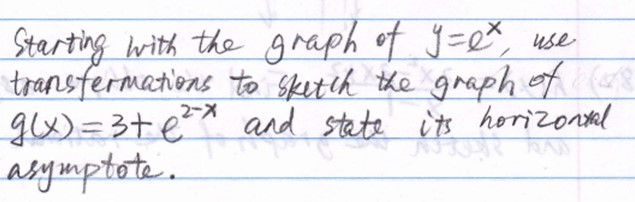 Starting with the graph of y=eˣ, use
transfermations to sketch the graph of
g(x)=3+e²⁻ˣ and state its horizontal
asymptote.